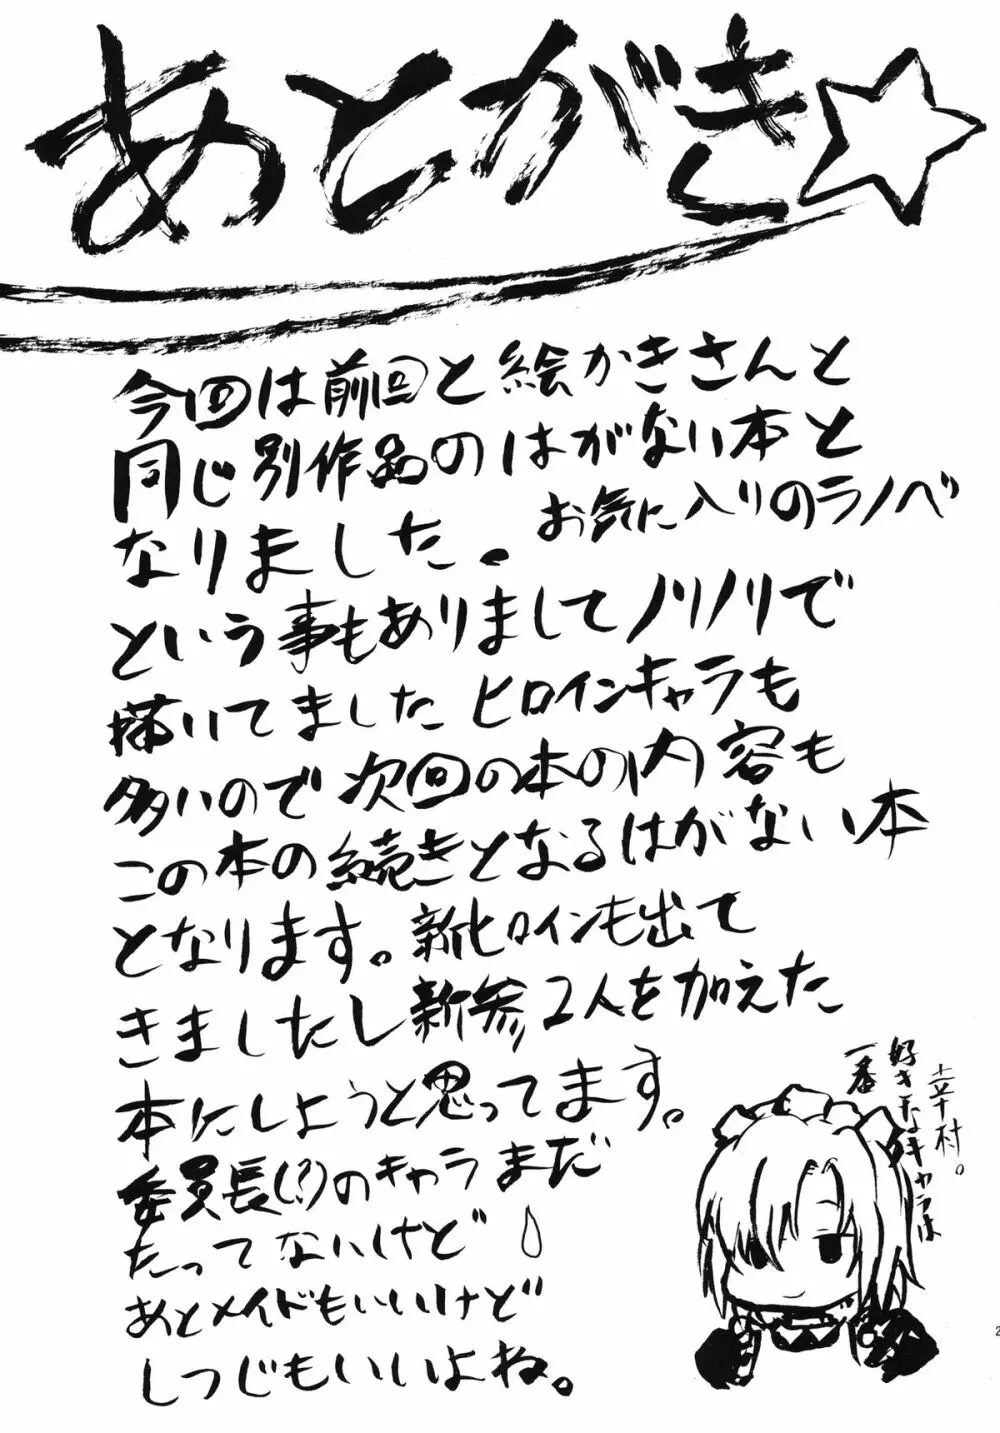 あとがき☆
今回は前回と絵かきさんと
同じ別作品のはがない本と
なりました。お気に入りのラノベ
という事もありましてノリノリで
描いてましたヒロインキャラも
多いので次回の本の内容も
この本の続きとなるはがない本
となります。新ヒロインも出て
きましたし新参2人を加えた
本にしようと思ってます。
委員長(?)のキャラまだ
たってないけど
あとメイドもいいけど
しつじもいいよね。
一番
好きなキャラは
幸村。
2